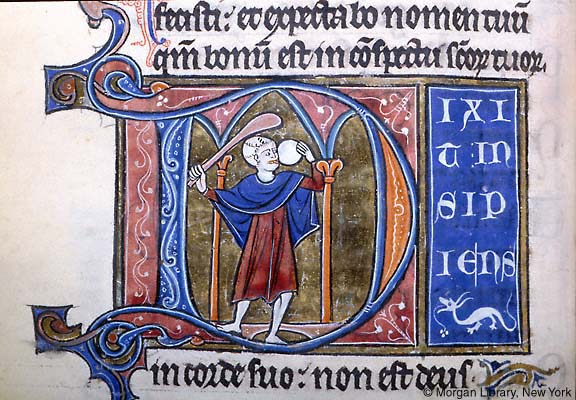 fecisti: et expectabo nomen tuū
qm̄ bonū est in cōspectu scōꝝ tuoꝝ.
D IXI
T IN
SIP
IENS
in corde suo: non est deus.
© Morgan Library, New York